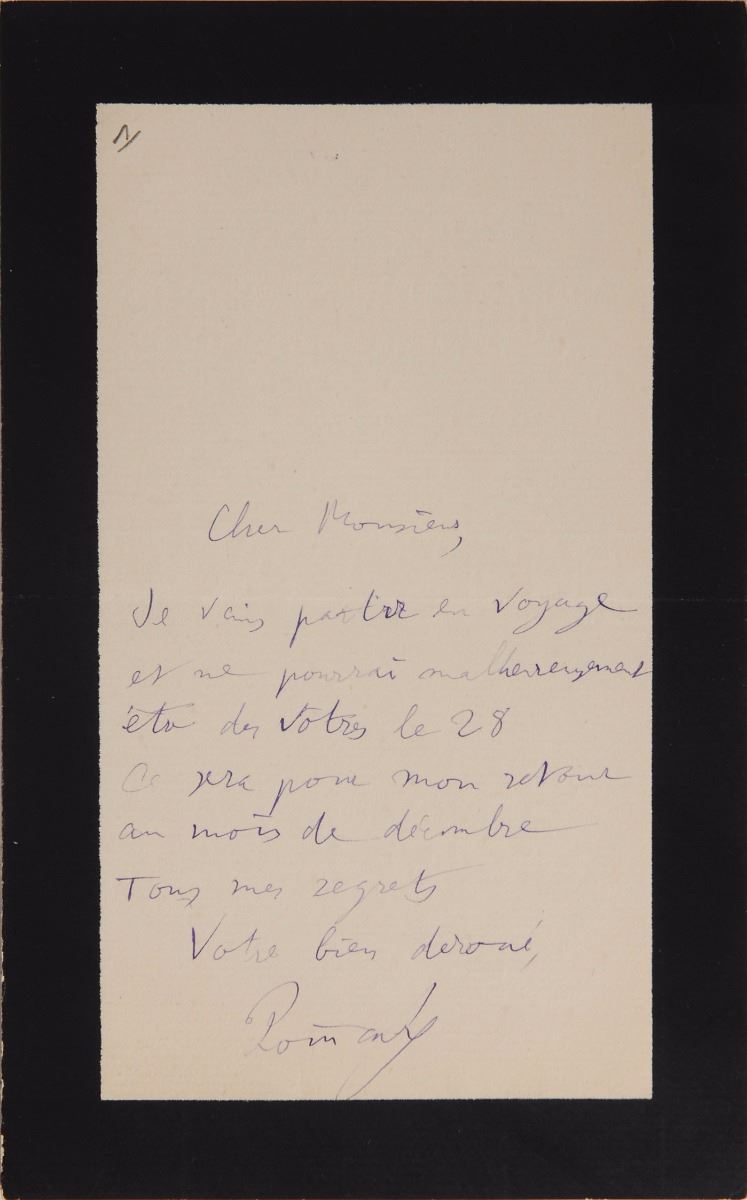 Cher Monsieur,
Je vais partir en voyage
et ne pourrai malheureusement
être des vôtres le 28
Ce sera pour mon retour
au mois de décembre
Tous mes regrets
Votre bien dévoué,